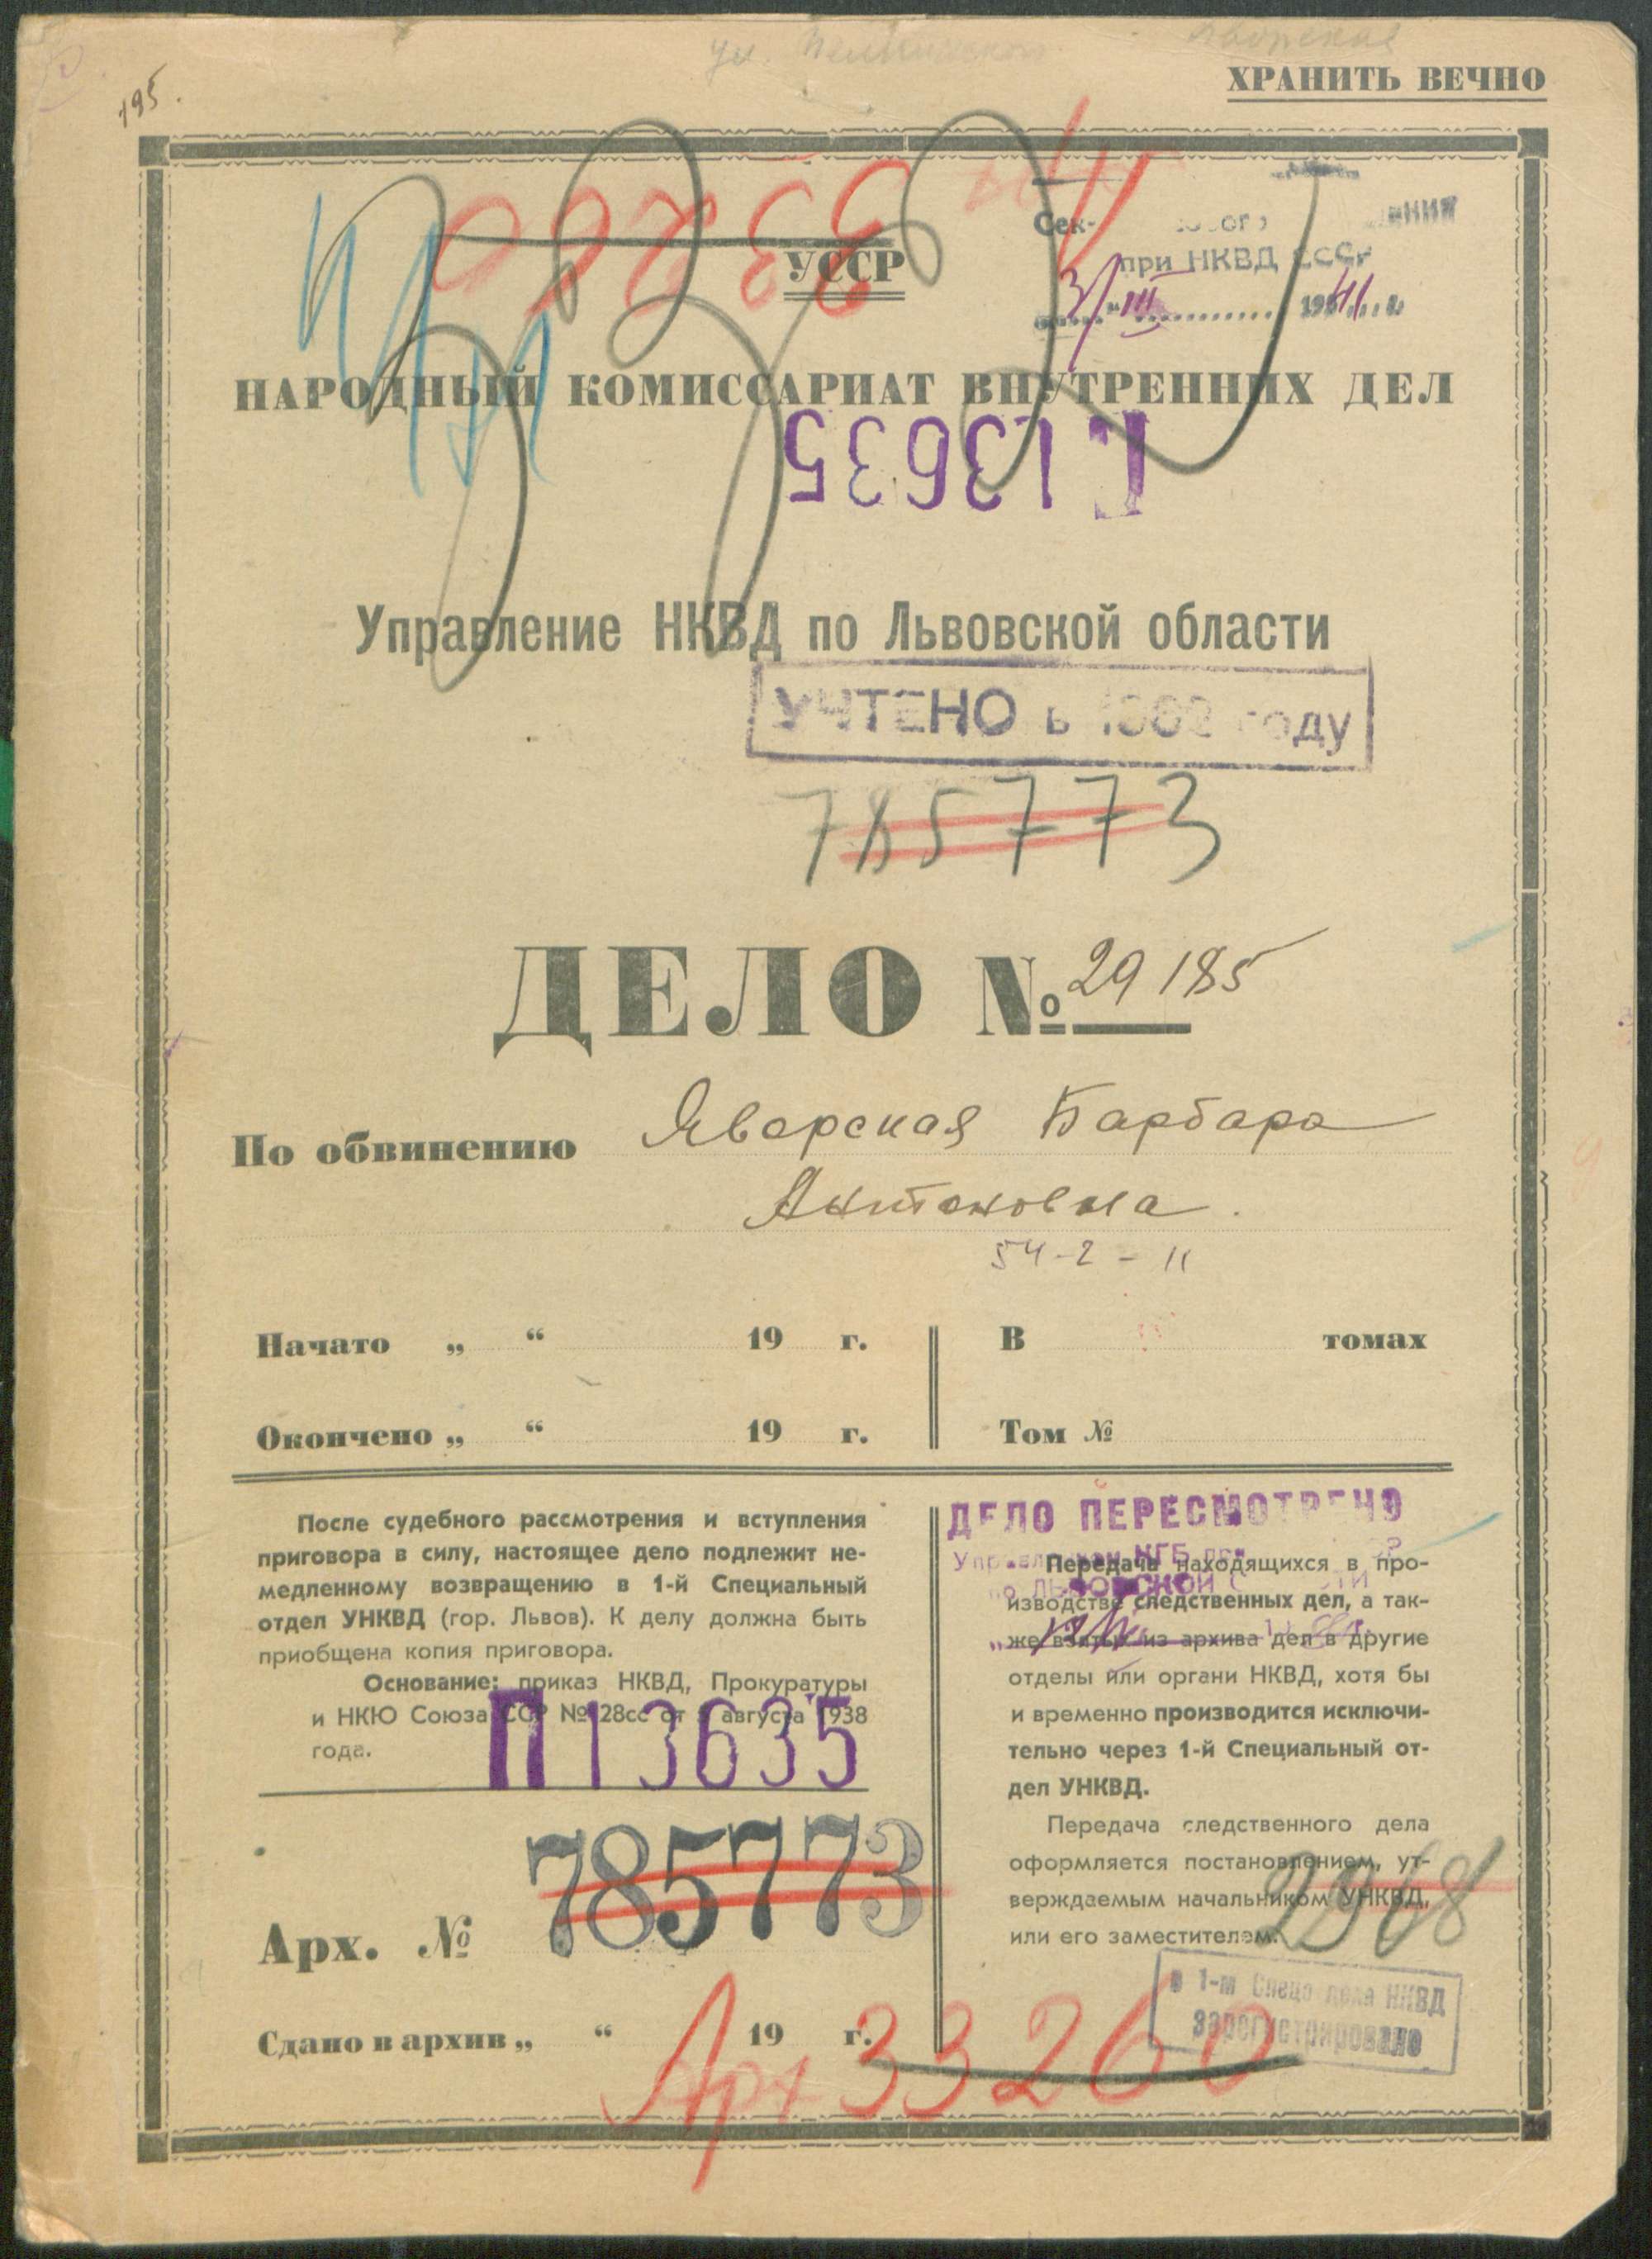 ХРАНИТЬ ВЕЧНО
195.
33260
УССР
при НКВД СССР
3/III 1941 г.
НАРОДНЫЙ КОМИССАРИАТ ВНУТРЕННИХ ДЕЛ
П 13635
Управление НКВД по Львовской области
УЧТЕНО в году
785773
ДЕЛО № 29185
По обвинению Яворская Барбара
Антоновна.
54-2-11
Начато „ “ 19 г.
Окончено „ “ 19 г.
В томах
Том №
После судебного рассмотрения и вступления
приговора в силу, настоящее дело подлежит не-
медленному возвращению в 1-й Специальный
отдел УНКВД (гор. Львов). К делу должна быть
приобщена копия приговора.
Основание: приказ НКВД, Прокуратуры
и НКЮ Союза ССР № 28сс от августа 1938
года.
П13635
Арх. № 785773
Сдано в архив „ “ 19 г.
Арх 33260
ДЕЛО ПЕРЕСМОТРЕНО
Передача находящихся в про-
изводстве следственных дел, а так-
же взятых из архива дел в другие
отделы или органи НКВД, хотя бы
и временно производится исключи-
тельно через 1-й Специальный от-
дел УНКВД.
Передача следственного дела
оформляется постановлением, ут-
верждаемым начальником УНКВД,
или его заместителем.
2968
в 1-м Спецотдела НКВД
Зарегистрировано